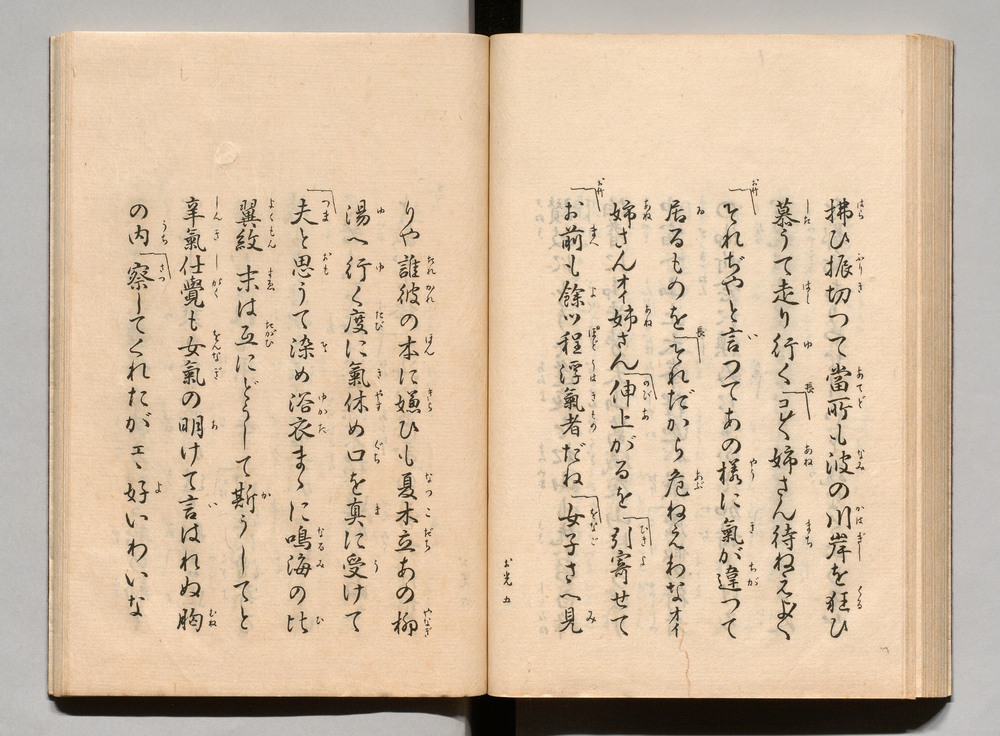 拂ひ振切つて當所も波の川岸を狂ひ
慕うて走り行くコレ〱姉さん待ねえよ〱
それぢやと言つてあの様に氣が違つて
居るものをそれだから危ねえわなオイ
姉さんオイ姉さん伸上がるを引寄せて
お前も餘ッ程浮氣者だね女子さへ見
お光 五
りや誰彼の本に嫌ひも夏木立あの柳
湯へ行く度に氣休め口を真に受けて
夫と思うて染め浴衣まゝに鳴海の比
翼紋末は互にどうして斯うしてと
辛氣仕覺も女氣の明けて言はれぬ胸
の内察してくれたがエヽ好いわいな